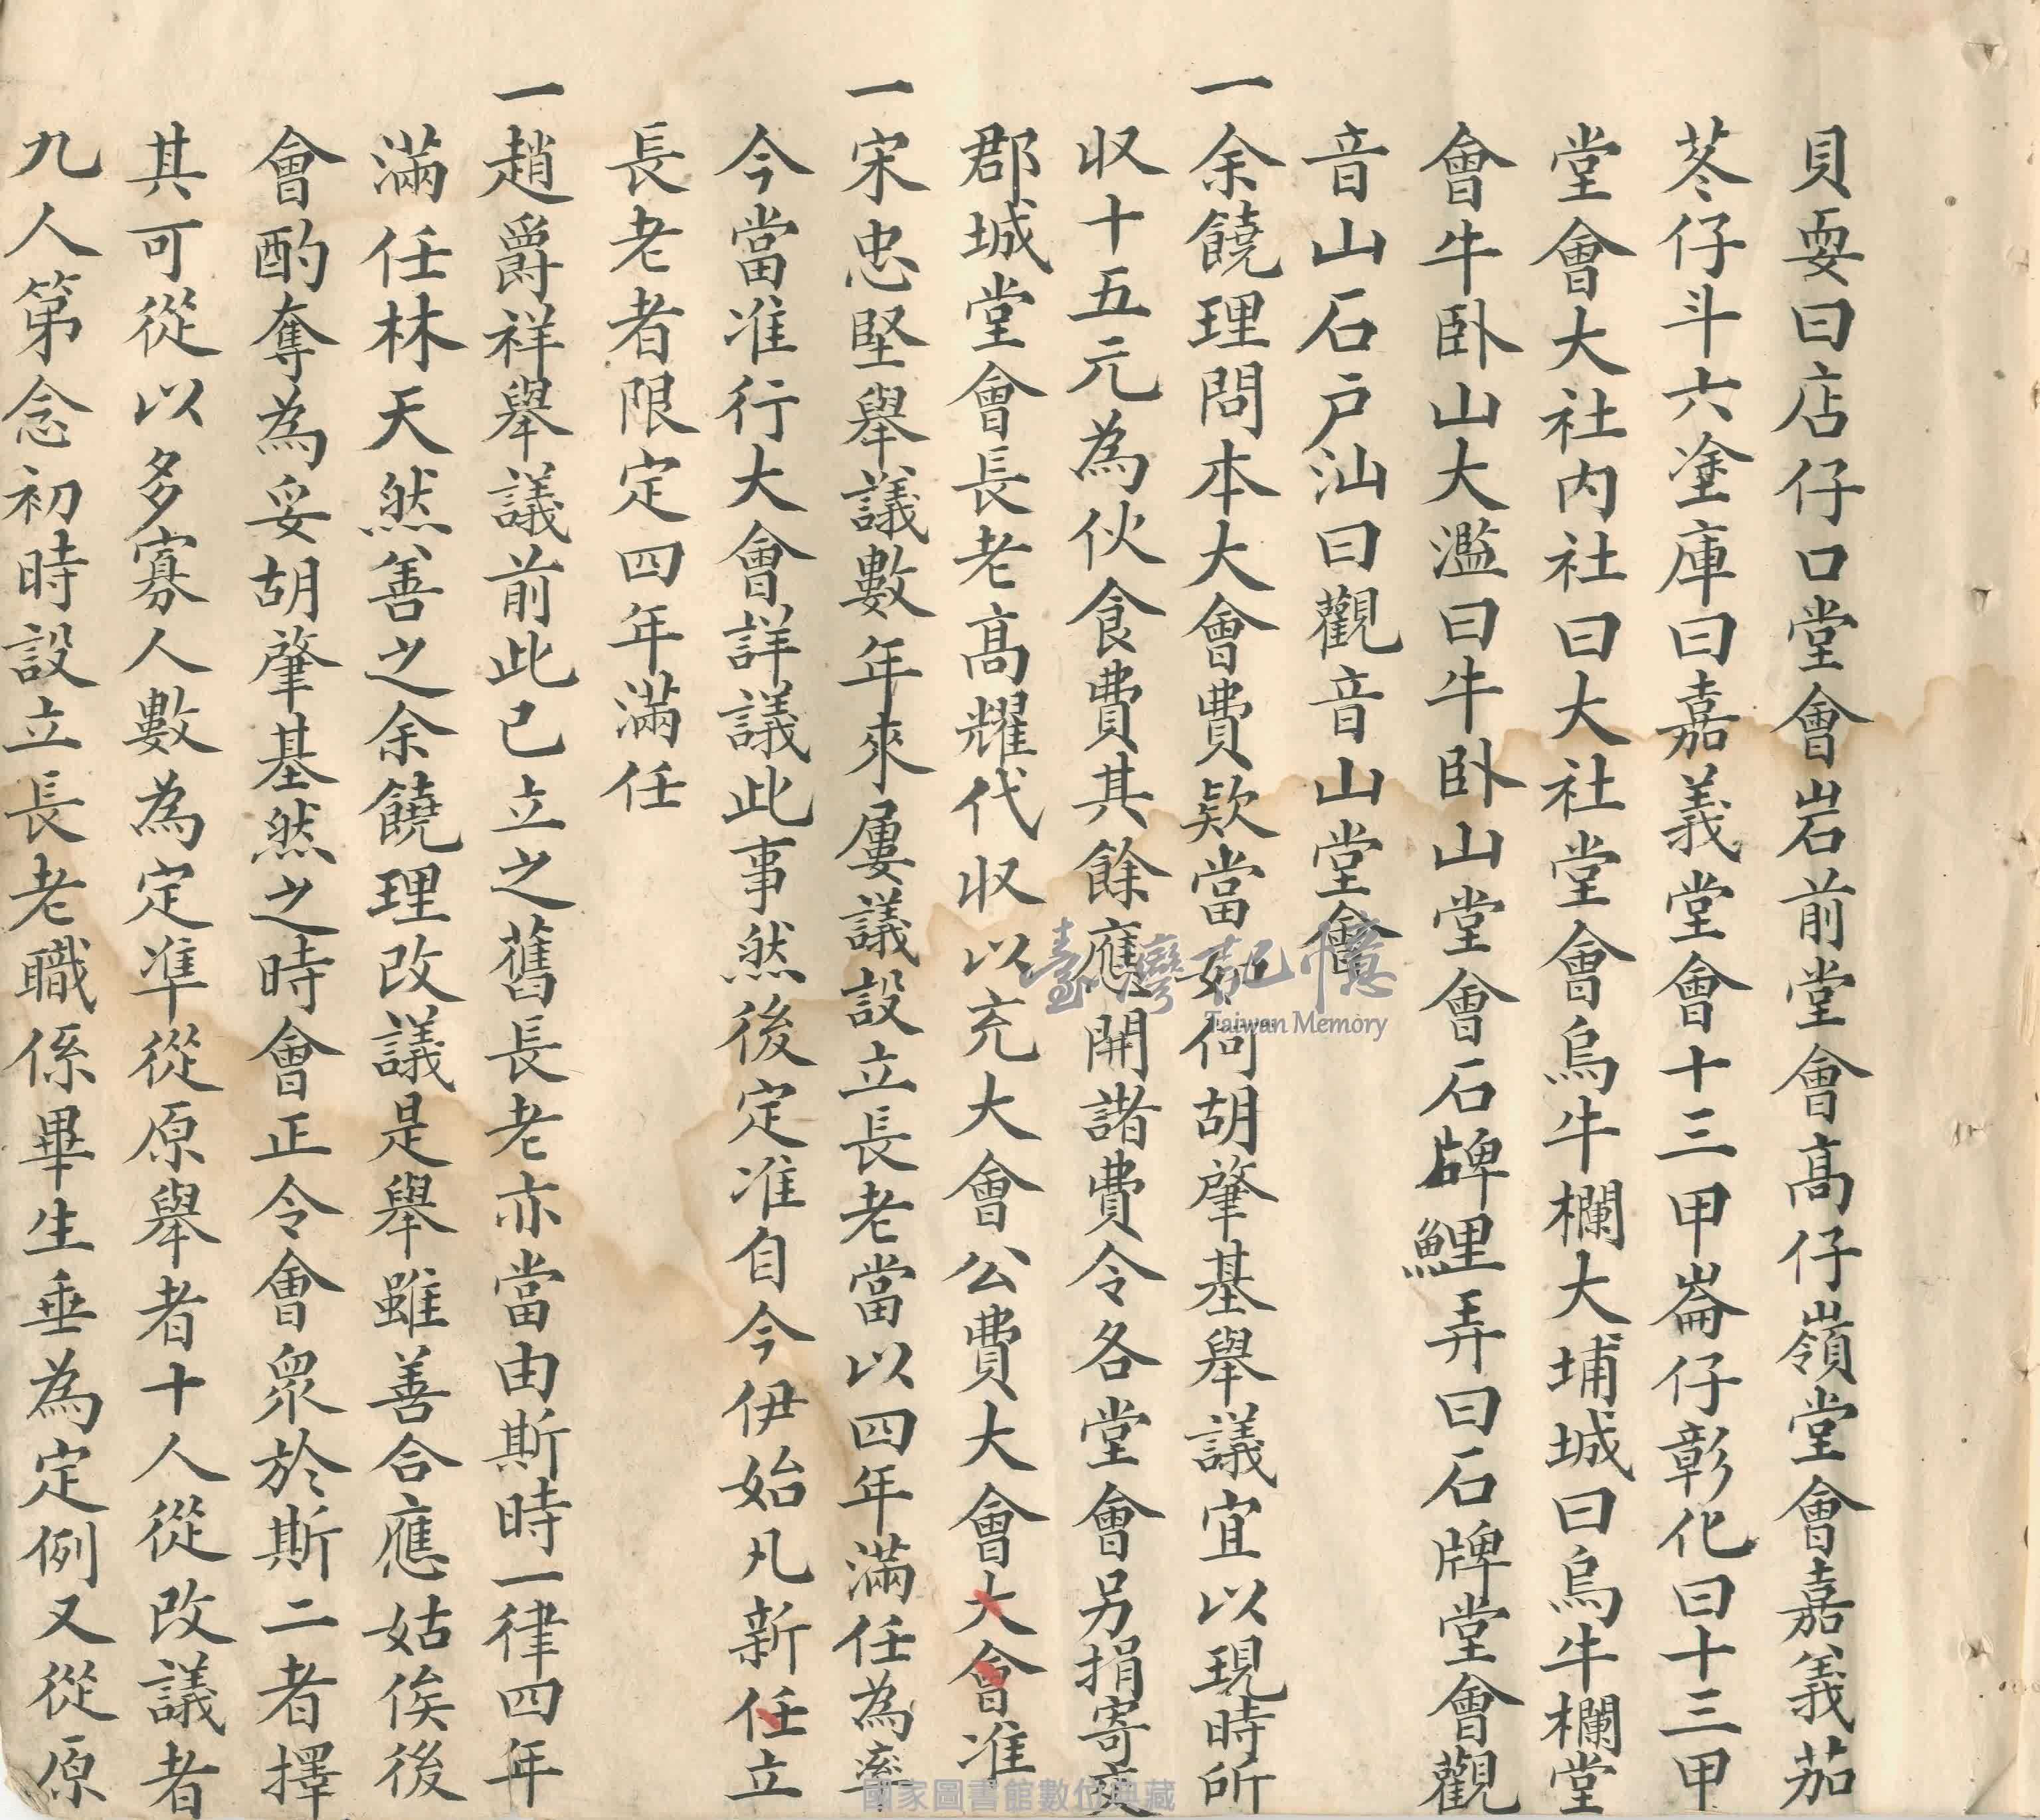 貝耍曰店仔口堂會岩前堂會高仔嶺堂會嘉義茄
苳仔斗六塗庫曰嘉義堂會十三甲崙仔彰化曰十三甲
堂會大社內社曰大社堂會烏牛欄大埔城曰烏牛欄堂
會牛卧山大濫曰牛卧山堂會石牌鯉弄曰石牌堂會觀
音山石戸汕曰觀音山堂會
一余饒理問本大會費欵當如何胡肇基舉議宜以現時所
収十五元為伙食費其餘應開諸費令各堂會另捐寄交
郡城堂會長老高耀代収以充大會公費大會大會准
一宋忠堅舉議數年來屢議設立長老當以四年滿任為率
今當准行大會詳議此事然後定准自今伊始凡新任立
長老者限定四年滿任
一趙爵祥舉議前此已立之舊長老亦當由斯時一律四年
滿任林天然善之余饒理改議是舉雖善合應姑俟後
會酌奪為妥胡肇基然之時會正令會眾於斯二者擇
其可從以多寡人數為定準從原舉者十人從改議者
九人第念初時設立長老職係畢生垂為定例又從原
臺灣記憶
Taiwan Memory
國家圖書館數位典藏